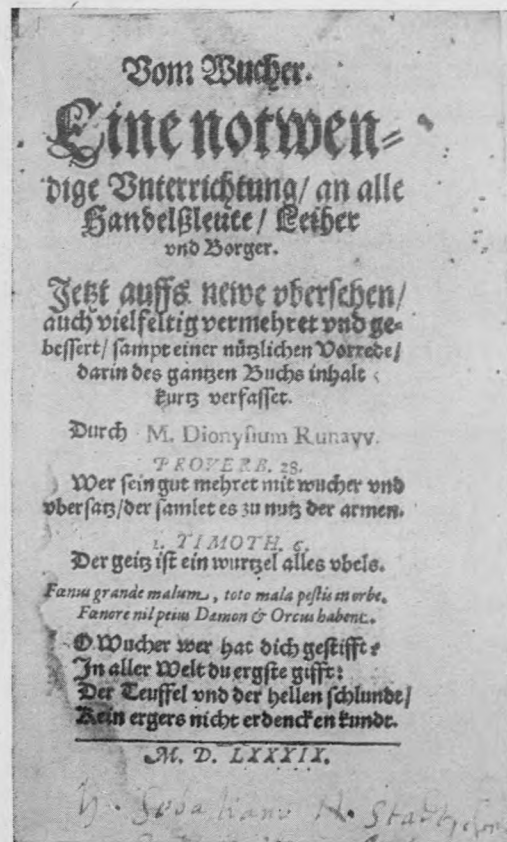 Vom Wucher.
Eine notwen=
dige Vnterrichtung/ an alle
Handelßleute/ Leiher
vnd Borger.
Jetzt auffs newe vbersehen/
auch vielfeltig vermehret vnd ge=
bessert/ sampt einer nützlichen Vorrede/
darin des gantzen Buchs inhalt
kurtz verfasset.
Durch M. Dionysium Runavv.
PROVERB. 28.
Wer sein gut mehret mit wucher vnd
vbersatz/der samlet es zu nutz der armen.
1. TIMOTH. 6.
Der geitz ist ein wurtzel alles vbels.
Fœnus grande malum, toto mala pestis in orbe.
Fœnore nil peius Dæmon & Orcus habent.
O Wucher wer hat dich gestifft?
In aller Welt du ergste gifft:
Der Teuffel vnd der hellen schlundt/
Kein ergers nicht erdencken kundt.
M. D. LXXXIX.